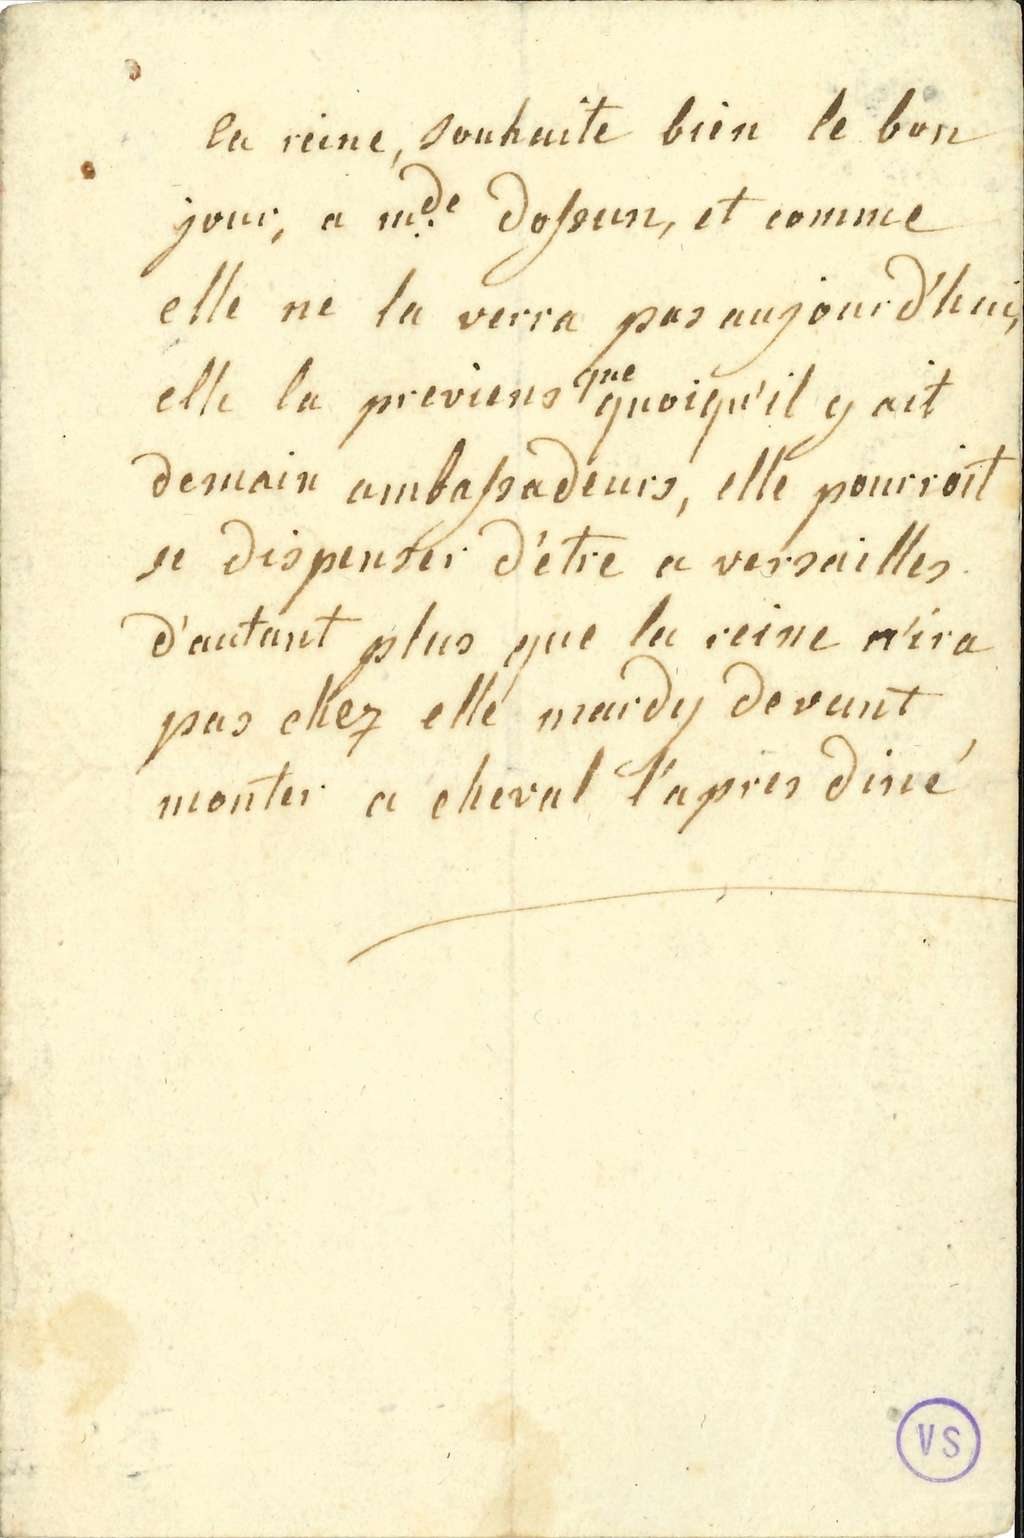 la reine, souhaite bien le bon
jour, a mde. dossun, et comme
elle ne la verra pas aujourd'hui,
elle la previens que quoiqu'il y ait
demain ambassadeurs, elle pourroit
se dispenser d'étre a versailles
d'autant plus que la reine n'ira
pas chez elle mardy devant
monter a cheval l'apres diné
VS